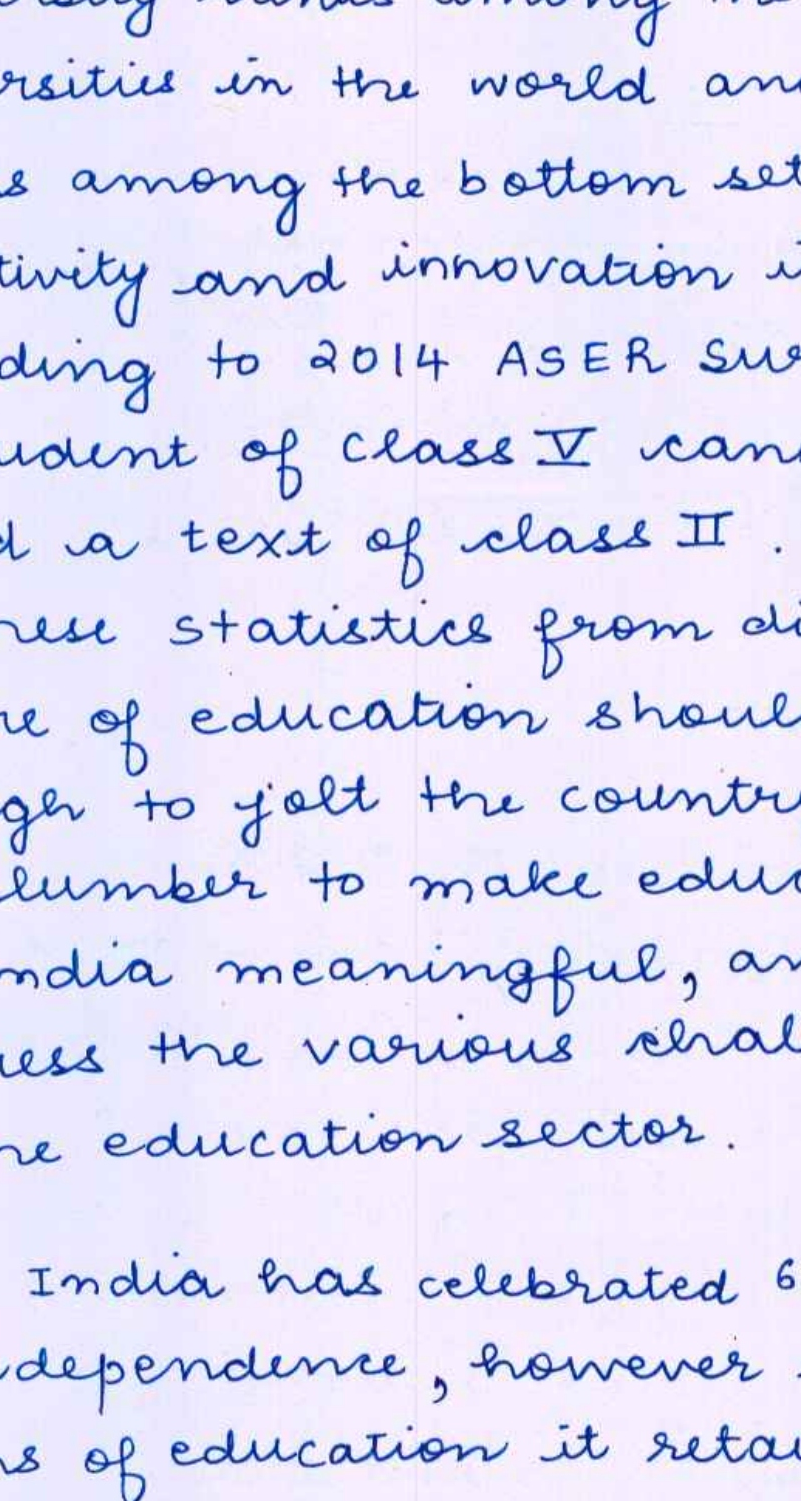 among
rsities in the world an
s among the bottom set
tivity and innovation i
ding to 2014 ASER Sur
udent of class V can
d a text of class II .
hese statistics from di
re of education shoul
gh to jolt the countr
lumber to make educ
ndia meaningful, an
ress the various chal
he education sector .
India has celebrated 6
dependence , however
ns of education it retai